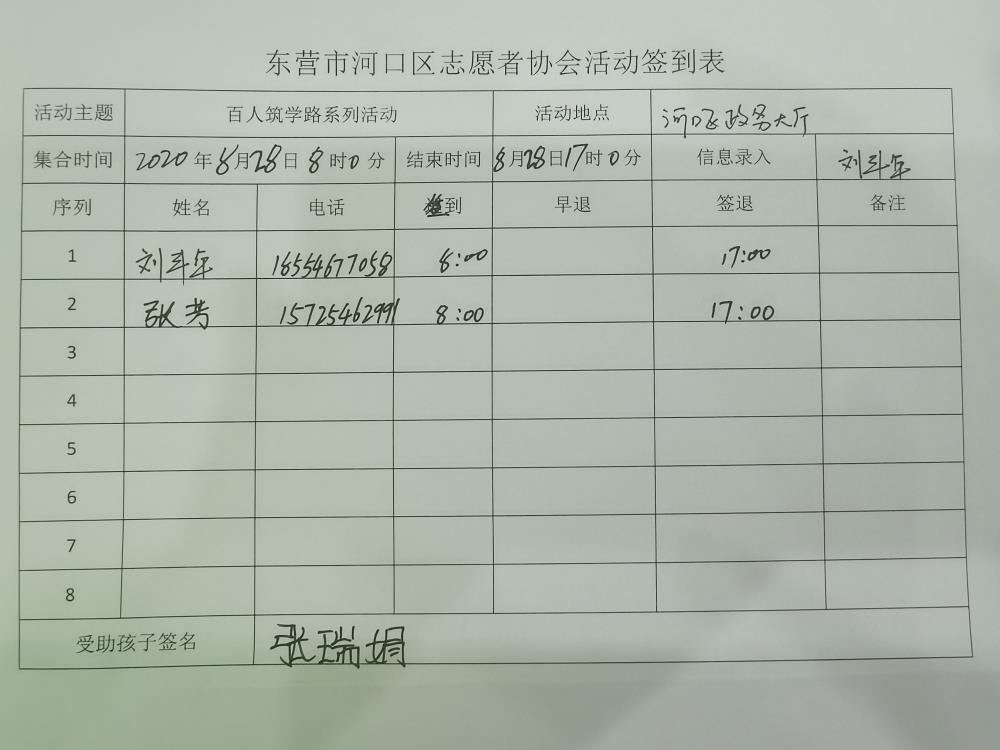 东营市河口区志愿者协会活动签到表
活动主题 百人筑学路系列活动 活动地点 河口区政务大厅
集合时间 2020年8月28日8时0分 结束时间 8月28日17时0分 信息录入 刘斗年
序列 姓名 电话 到 早退 签退 备注
1 刘斗年 18554677058 8:00 17:00
2 张芳 15725462991 8:00 17:00
3
4
5
6
7
8
受助孩子签名 张瑞娟